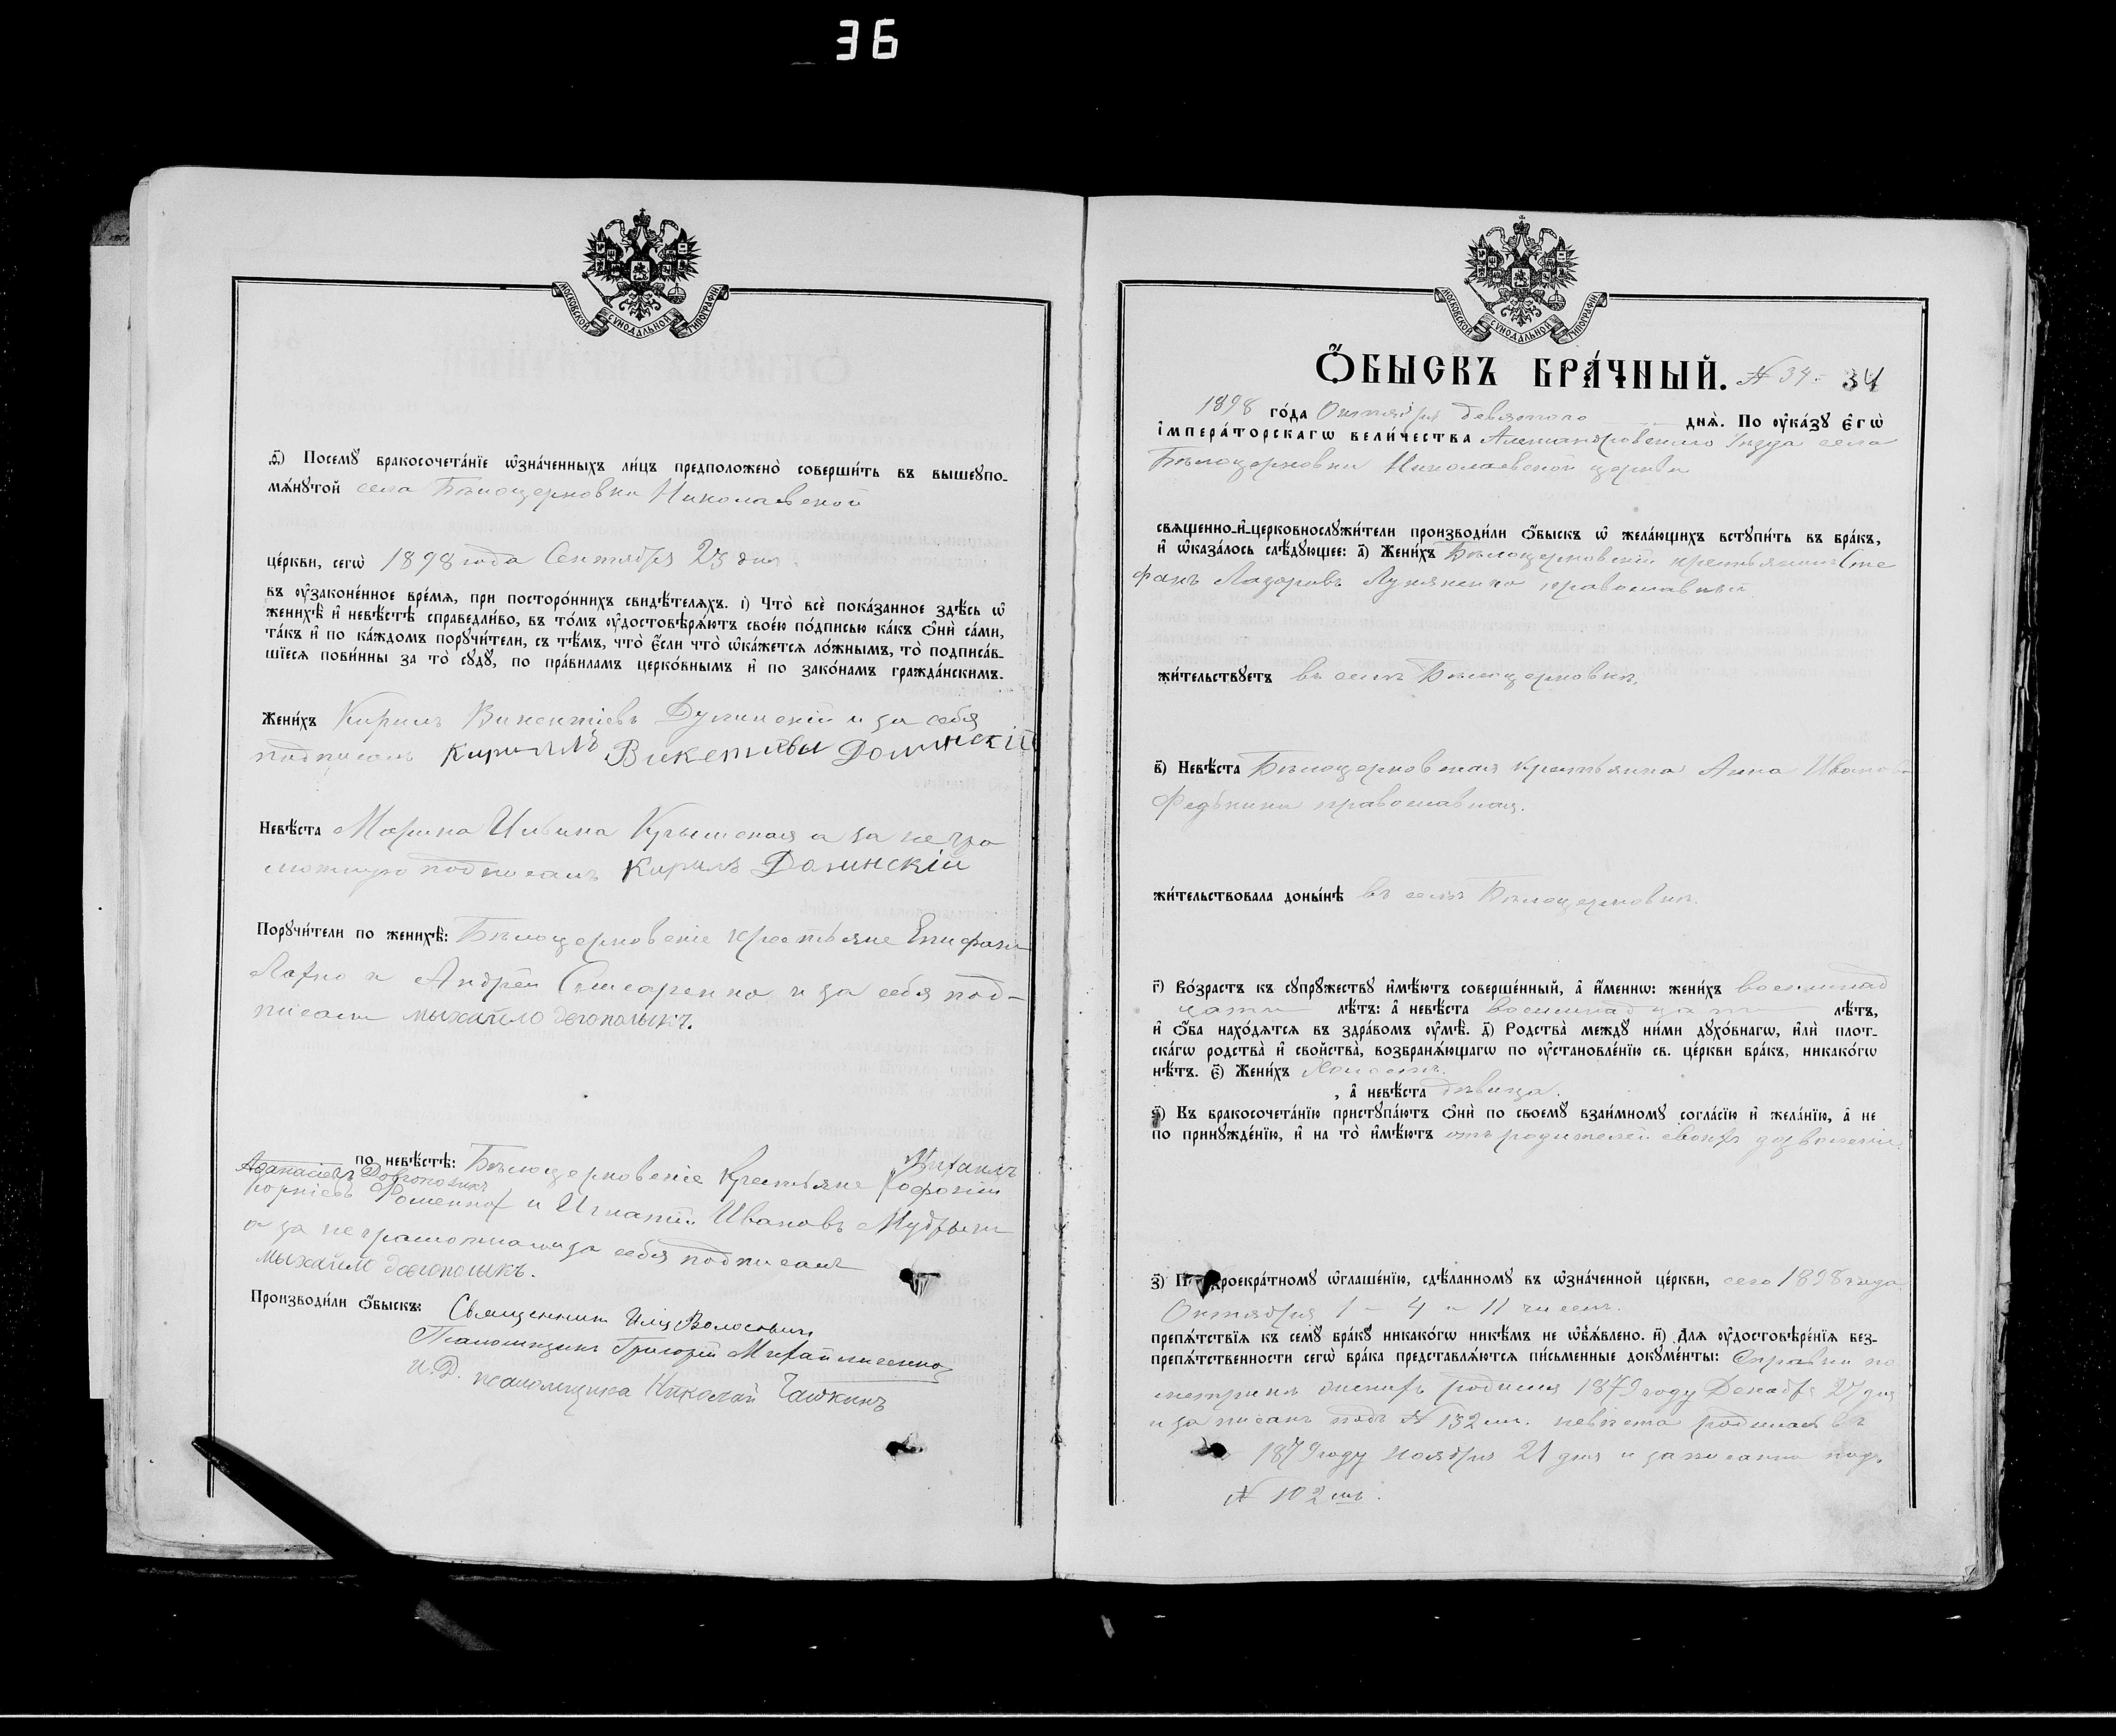 36
МОСКОВСКОЙ СУНОДАЛЬНОЙ ТИПОГРАФІИ
д҃і) Посемꙋ̀ бракосочета́нїе ѡ҆зна́ченныхъ ли́цъ предположено̀ соверши́ть въ вышеꙋпо-
мѧ́нꙋтой села Бѣлоцерковки Николаевской
це́ркви, сегѡ̀ 1898 года Сентября 23 дня
въ ᲂу҆зако́ненное вре́мѧ, при посторо́ннихъ свидѣ́телѧхъ. і) Что̀ всѐ пока́занное здѣ́сь ѡ҆
женихѣ̀ и҆ невѣ́стѣ справедли́во, въ то́мъ ᲂу҆достовѣрѧ́ютъ свое́ю по́дписью ка́къ ѻ҆нѝ са́ми,
та́къ и҆ по ка́ждомъ порꙋчи́тели, съ тѣ́мъ, что̀ є҆́сли что̀ ѡ҆ка́жетсѧ ло́жнымъ, то̀ подписа́в-
шїесѧ пови́нны за то̀ сꙋдꙋ̀, по пра́виламъ церко́внымъ и҆ по зако́намъ гражда́нскимъ.
Жени́хъ Кирилъ Викентіевъ Долинскій и за себя
подписалъ Кириллъ Долинскій
Невѣ́ста Марина Ильина а за негра
мотную подписалъ Кирилъ Долинскій
Порꙋчи́тели по женихѣ̀: Бѣлоцерковскіе крестьяне Епифанъ
Лахно и Андрей и за себя под-
писали мыхайло
по невѣ́стѣ: Бѣлоцерковскіе Крестьяне Михаилъ
Афанасіевъ Довгополикъ
Корніевъ и Игнатій Ивановъ Мудрый
а за неграмотнаго и за себя подписалъ
мыхайло довгополыкъ.
Производи́ли ѻ҆́быскъ: Священникъ Илія Волосовичъ
Псаломщикъ Григорій
И.Д. псаломщика Николай Чашкинъ
МОСКОВСКОЙ СУНОДАЛЬНОЙ ТИПОГРАФІИ
Ѻ҆́БЫСКЪ БРА́ЧНЫЙ. № 34. 34
1898 го́да Октября девятого днѧ̀. По ᲂу҆ка́зꙋ Є҆гѡ̀
і҆мпера́торскагѡ вели́чества Александровскаго Уѣзда села
Бѣлоцерковки Николаевской церкви
свѧщенно-и҆-церковнослꙋжи́тели производи́ли ѻ҆́быскъ ѡ҆ жела́ющихъ встꙋпи́ть въ бра́къ,
и҆ ѡ҆каза́лось слѣ́дꙋющее: а҃) Жени́хъ Бѣлоцерковскій крестьянинъ Сте
фанъ Лазоревъ Лукяненко православный
жи́тельствꙋетъ въ селѣ Бѣлоцерковки.
в҃) Невѣ́ста Бѣлоцерковская крестьянка Анна Иванова
Федькина православная.
жи́тельствовала доны́нѣ въ селѣ Бѣлоцерковки.
г҃) Во́зрастъ къ сꙋпрꙋ́жествꙋ и҆мѣ́ютъ соверше́нный, а҆ и҆́меннѡ: жени́хъ восемнад
цати лѣ́тъ: а҆ невѣ́ста восемнадцати лѣ́тъ,
и҆ ѻ҆́ба нахо́дѧтсѧ въ здра́вомъ ᲂу҆мѣ̀. д҃) Родства̀ междꙋ̀ ни́ми дꙋхо́внагѡ, и҆лѝ плот-
ска́гѡ родства̀ и҆ сво́йства̀, возбранѧ́ющагѡ по ᲂу҆становле́нїю св. це́ркви бра́къ, никако́гѡ
нѣ́тъ. є҃) Жени́хъ Холостъ.
, а҆ невѣ́ста дѣвица.
ѕ҃) Къ бракосочета́нїю пристꙋпа́ютъ ѻ҆нѝ по своемꙋ̀ взаи́мномꙋ согла́сїю и҆ жела́нїю, а҆ не
по принꙋжде́нїю, и҆ на то̀ и҆мѣ́ютъ отъ родителей своихъ дозволеніе
з҃) По троекра́тномꙋ ѡ҆глаше́нїю, сдѣ́ланномꙋ въ ѡ҆зна́ченной це́ркви, сего 1898 года
Октября 1 – 4 – 11 чиселъ.
препѧ́тствїѧ къ семꙋ̀ бра́кꙋ никако́гѡ никѣ́мъ не ѡ҆б̾ѧ́влено. и҃) Длѧ ᲂу҆достовѣре́нїѧ без-
препѧ́тственности сегѡ̀ бра́ка представлѧ́ютсѧ пи́сьменные докꙋме́нты: Справки по
метрикѣ женихъ родился 1879 году Декабря 27 дня
и записанъ подъ № 132 мъ. невѣста родилась въ
1879 году Ноября 21 дня и записанна подъ
№ 102 мъ.